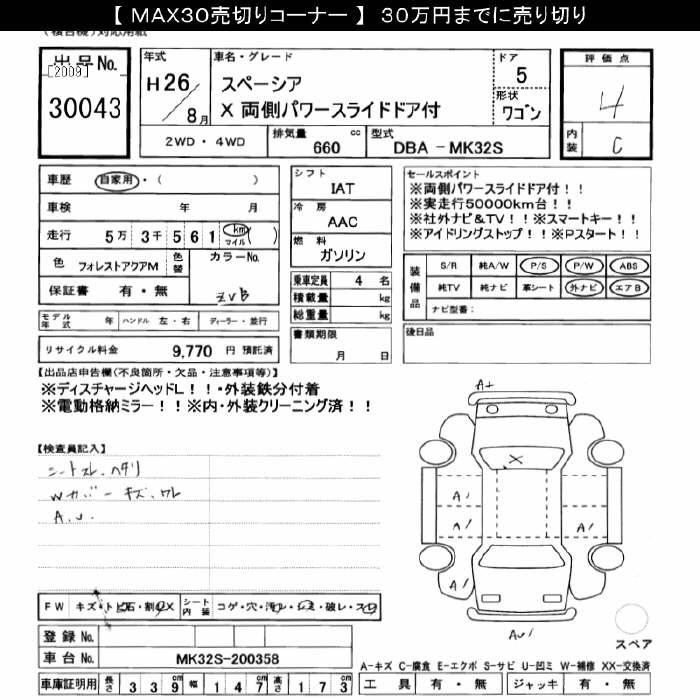 【 MAX30売切りコーナー 】 30万円までに売り切り
出品No.
[2009]
30043
年式
H26/8月
車名・グレード
スペーシア
X 両側パワースライドドア付
ドア
5
形状
ワゴン
評価点
4
内装
C
2WD・4WD
排気量 660 cc
型式 DBA - MK32S
車歴 自家用・( )
車検 年 月
走行 5万 3千 5 6 1 km マイル ( )
色 フォレストアクアM
色替
カラーNo.
ZVB
保証書 有・無
シフト
IAT
冷房
AAC
燃料
ガソリン
乗車定員 4 名
積載量 kg
総重量 kg
書類期限
月 日
セールスポイント
※両側パワースライドドア付！！
※実走行50000km台！！
※社外ナビ＆TV！！※スマートキー！！
※アイドリングストップ！！※Pスタート！！
装備品
S/R 純A/W P/S P/W ABS
純TV 純ナビ 革シート 外ナビ エアB
ナビ型番：
後日品
モデル年式 年 ハンドル 左・右 ディーラー・並行
リサイクル料金 9,770 円 預託済
【出品店申告欄(不良箇所・欠品・注意事項等)】
※ディスチャージヘッドL！！・外装鉄分付着
※電動格納ミラー！！※内・外装クリーニング済！！
【検査員記入】
シートスレ、ヘタリ
Wカバーキズ、ワレ
A.U.
A+
X
A1
A1
A1
A1
AU1
スペア
FW キズ・トビ石・割・X
シート内装 コゲ・穴・汚レ・シミ・破レ・スレ
登録No.
車台No. MK32S-200358
車庫証明用 長さ 339 cm 幅 147 cm 高さ 173 cm
A-キズ C-腐食 E-エクボ S-サビ U-凹ミ W-補修 XX-交換済
工具 有・無 ジャッキ 有・無